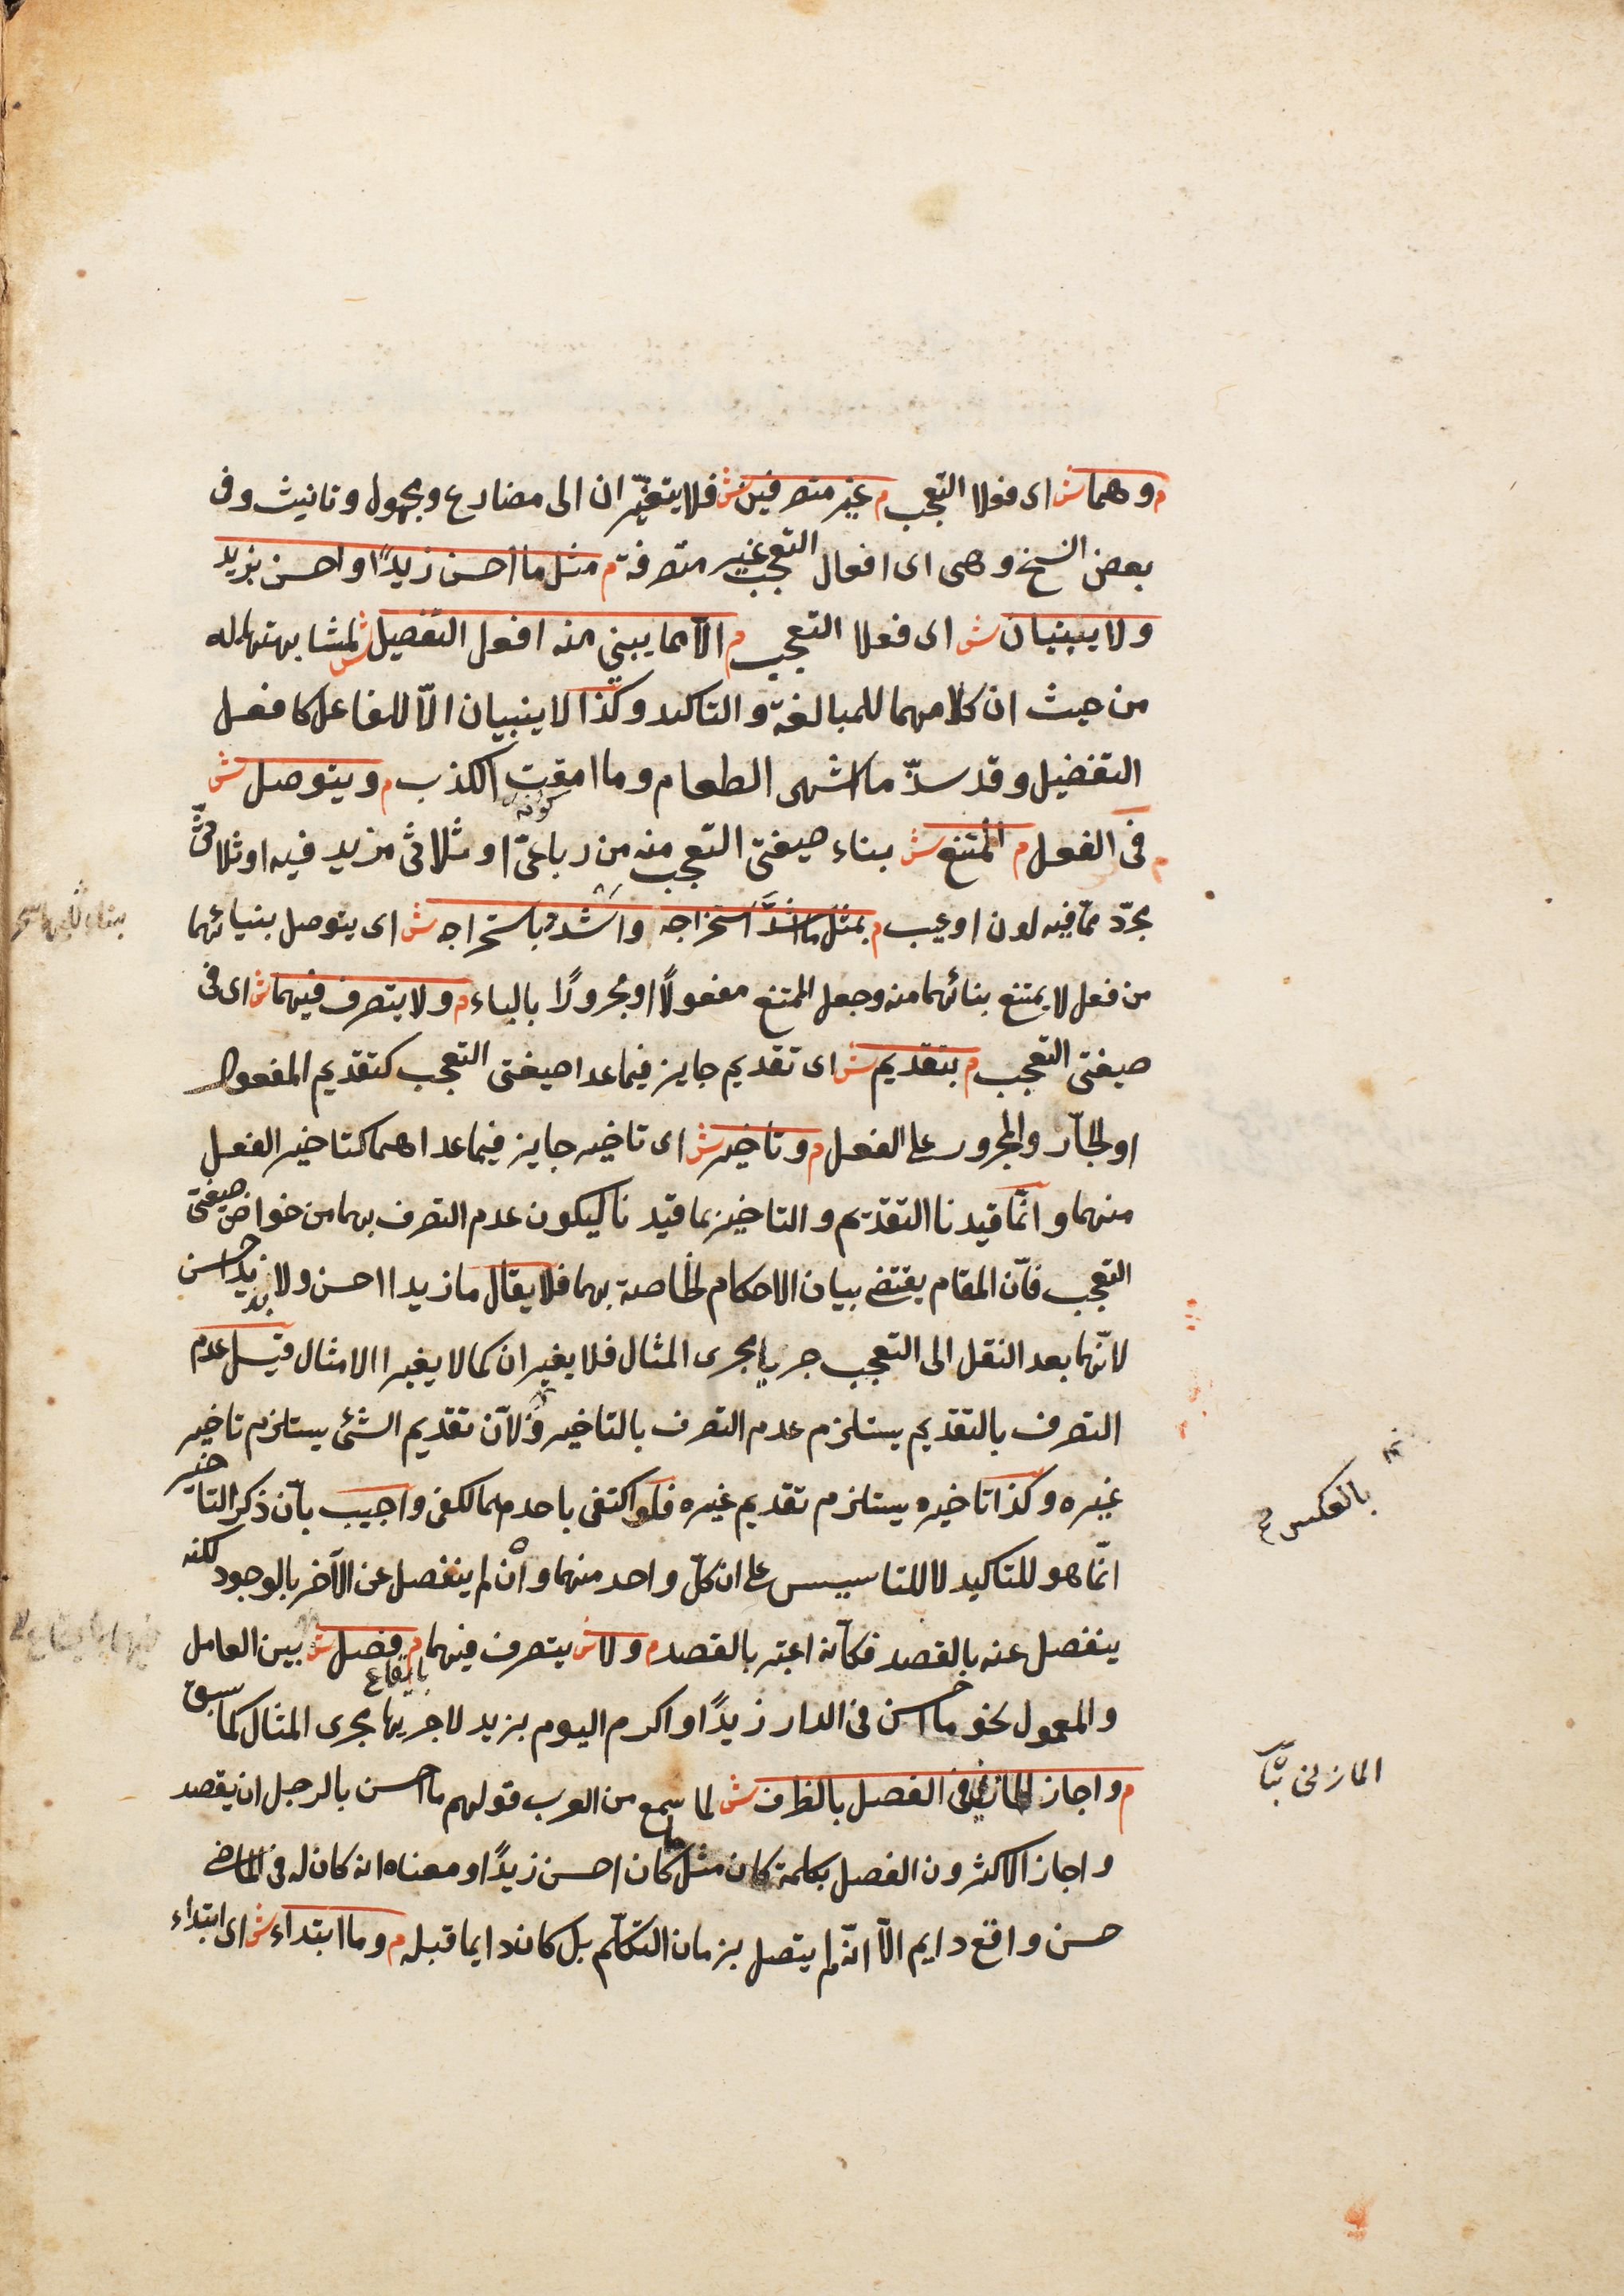 م وهما ش اى فعلا التعجب م غير متصرفين ش فلا يتغيّران الى مضارع ومجهول وتانيث وفى
بعض النسخ وهى اى افعال التعجب غير متصرفة م مثل ما احسن زيدًا واحسن بزيد
ولا يبنيان ش اى فعلا التعجب م الا مما يبنى منه افعل التفضيل ش لمشابهتهما له
من حيث ان كلا منهما للمبالغة والتاكيد وكذا لا ينبيان الّا للفاعل كافعل
التفضيل وقد شذّ ما اشهى الطعام وما امقت الكذب م ويتوصل ش
م فى الفعل م الممتنع ش بناء صيغتى التعجب منه من رباعىّ او ثلاثى مزيد فيه او ثلاثىّ
مجرّد مما فيه لون او عيب م بمثل ما اشدَّ استخراجه واشدد باستخراجه ش اى يتوصل ببنيائهما
من فعل لا يمتنع بنائهما منه وجعل الممتنع مفعولًا او مجرورًا بالباء م ولا يتصرف فيهما ش اى فى
صيغتى التعجب م بتقديم ش اى تقديم جايز فيما عدا صيغتى التعجب كتقديم المفعول
او الجارّ والمجرور على الفعل م وتاخير ش اى تاخير جايز فيما عداهما كتاخير الفعل
منهما وانّما قيدنا التقديم والتاخير بما قيدنا ليكون عدم التصرف بهما من خواص صيغتى
التعجب فانّ المقام يقتضى بيان الاحكام الخاصة بهما فلا يقال ما زيدا احسن ولا بزيد احسن
لانّهما بعد النقل الى التعجب جريا مجرى المثال فلا يغيران كما لا يغير الامثال قيل عدم
التصرف بالتقديم يستلزم عدم التصرف بالتاخير ولانّ تقديم الشئ يستلزم تاخير
غيره وكذا تاخيره يستلزم تقديم غيره فلو اكتفى باحدهما لكفى واجيب بانّ ذكر التاخير
انّما هو للتاكيد لا للتاسيس على ان كلّ واحد منهما وان لم ينفصل عن الآخر بالوجود لكنه
ينفصل عنه بالقصد فكأنه اعتبر بالقصد م ولا ش يتصرف فيهما بايقاع م فصل ش بين العامل
والمعمول نحو ما احسن فى الدار زيدًا واكرم اليوم بزيد لاجريهما مجرى المثال كما سبق
م واجاز المازنى فى الفصل بالظرف ش لما سمع من العرب قولهم ما احسن بالرجل ان يقصد
واجاز الاكثرون الفصل بكلمة كان مثل ما كان احسن زيدًا ومعناه انه كان له فى الماضى
حسن واقع دايم الّا انّه لم يتصل بزمان التكلّم بل كان دايما قبله م وما ابتداء ش اى ابتداء
بالعكس
المازنى